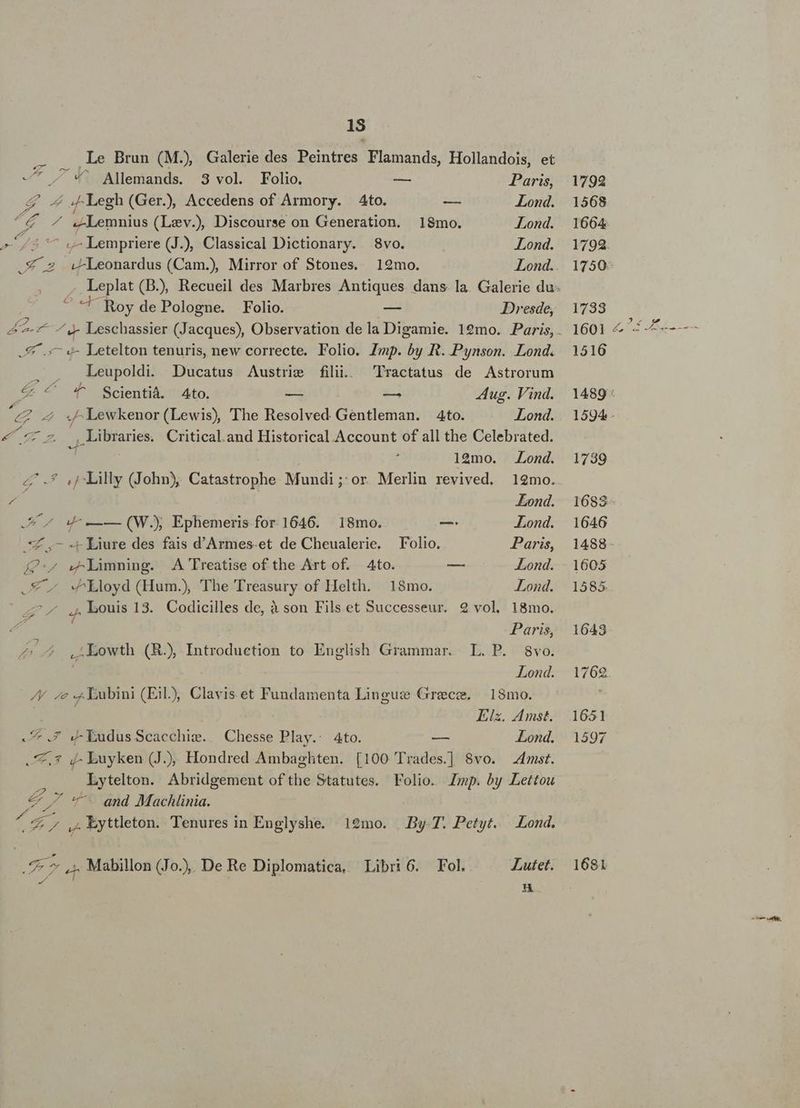 13
Le Brun (M.), Galerie des Peintres Flamands, Hollandois, et
Allemands. 3 vol. Folio. — Paris, 1792
Legh (Ger.), Accedens of Armory. 4to. — Lond. 1568
Lemnius (Læv.), Discourse on Generation. 18mo. Lond. 1664
Lempriere (J.), Classical Dictionary. 8vo. Lond. 1792
Leonardus (Cam.), Mirror of Stones. 12mo. Lond. 1750
Leplat (B.), Recueil des Marbres Antiques dans la Galerie du
Roy de Pologne. Folio. — Dresde, 1733
Leschassier (Jacques), Observation de la Digamie. 12mo. Paris, 1601
Letelton tenuris, new correcte. Folio. Imp. by R. Pynson. Lond. 1516
Leupoldi. Ducatus Austriæ filii. Tractatus de Astrorum
Scientiâ. 4to. — — Aug. Vind. 1489
Lewkenor (Lewis), The Resolved Gentleman. 4to. Lond. 1594
Libraries. Critical and Historical Account of all the Celebrated.
12mo. Lond. 1739
Lilly (John), Catastrophe Mundi; or Merlin revived. 12mo.
Lond. 1683
—— (W.), Ephemeris for 1646. 18mo. — Lond. 1646
Liure des fais d'Armes et de Cheualerie. Folio. Paris, 1488
Limning. A Treatise of the Art of. 4to. — Lond. 1605
Lloyd (Hum.), The Treasury of Helth. 18mo. Lond. 1585
Louis 13. Codicilles de, à son Fils et Successeur. 2 vol. 18mo.
Paris, 1643
Lowth (R.), Introduction to English Grammar. L. P. 8vo.
Lond. 1762
Lubini (Eil.), Clavis et Fundamenta Linguæ Græcæ. 18mo.
Elz. Amst. 1651
Ludus Scacchiæ. Chesse Play. 4to. — Lond. 1597
Luyken (J.), Hondred Ambaghten. [100 Trades.] 8vo. Amst.
Lytelton. Abridgement of the Statutes. Folio. Imp. by Lettou
and Machlinia.
Lyttleton. Tenures in Englyshe. 12mo. By T. Petyt. Lond.
Mabillon (Jo.), De Re Diplomatica, Libri 6. Fol. Lutet. 1681
H